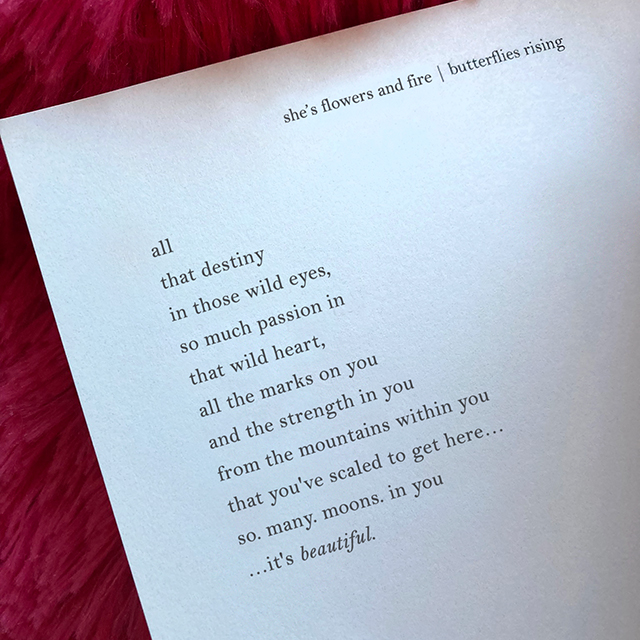 she's flowers and fire | butterflies rising
all
that destiny
in those wild eyes,
so much passion in
that wild heart,
all the marks on you
and the strength in you
from the mountains within you
that you've scaled to get here...
so. many. moons. in you
...it's beautiful.